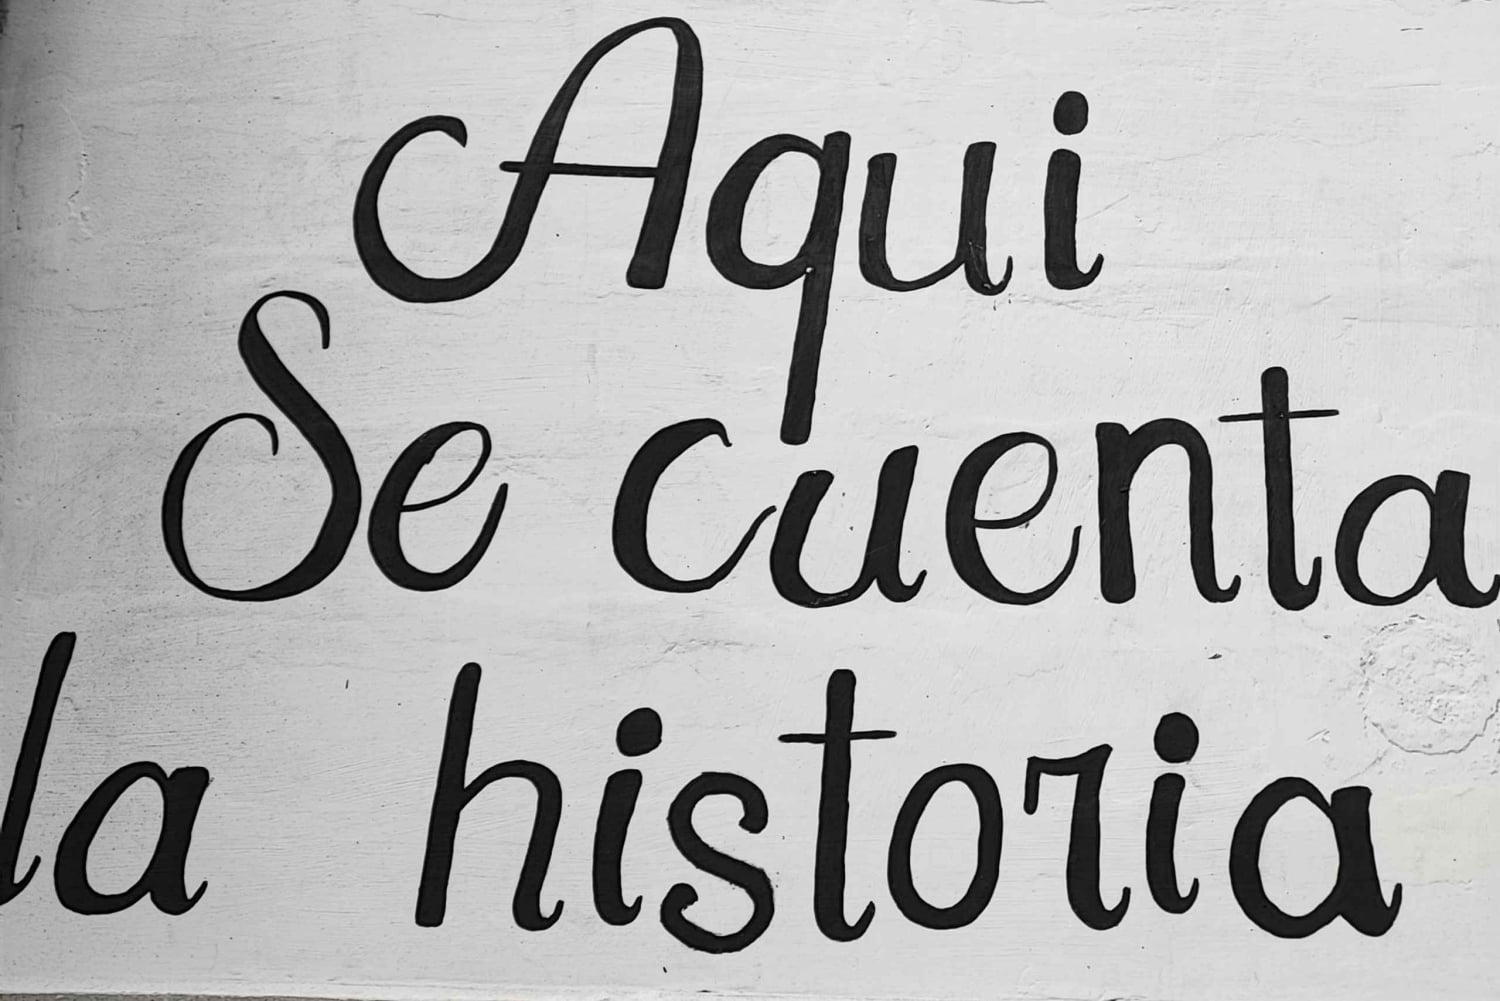 Aqui
Se cuenta
la historia